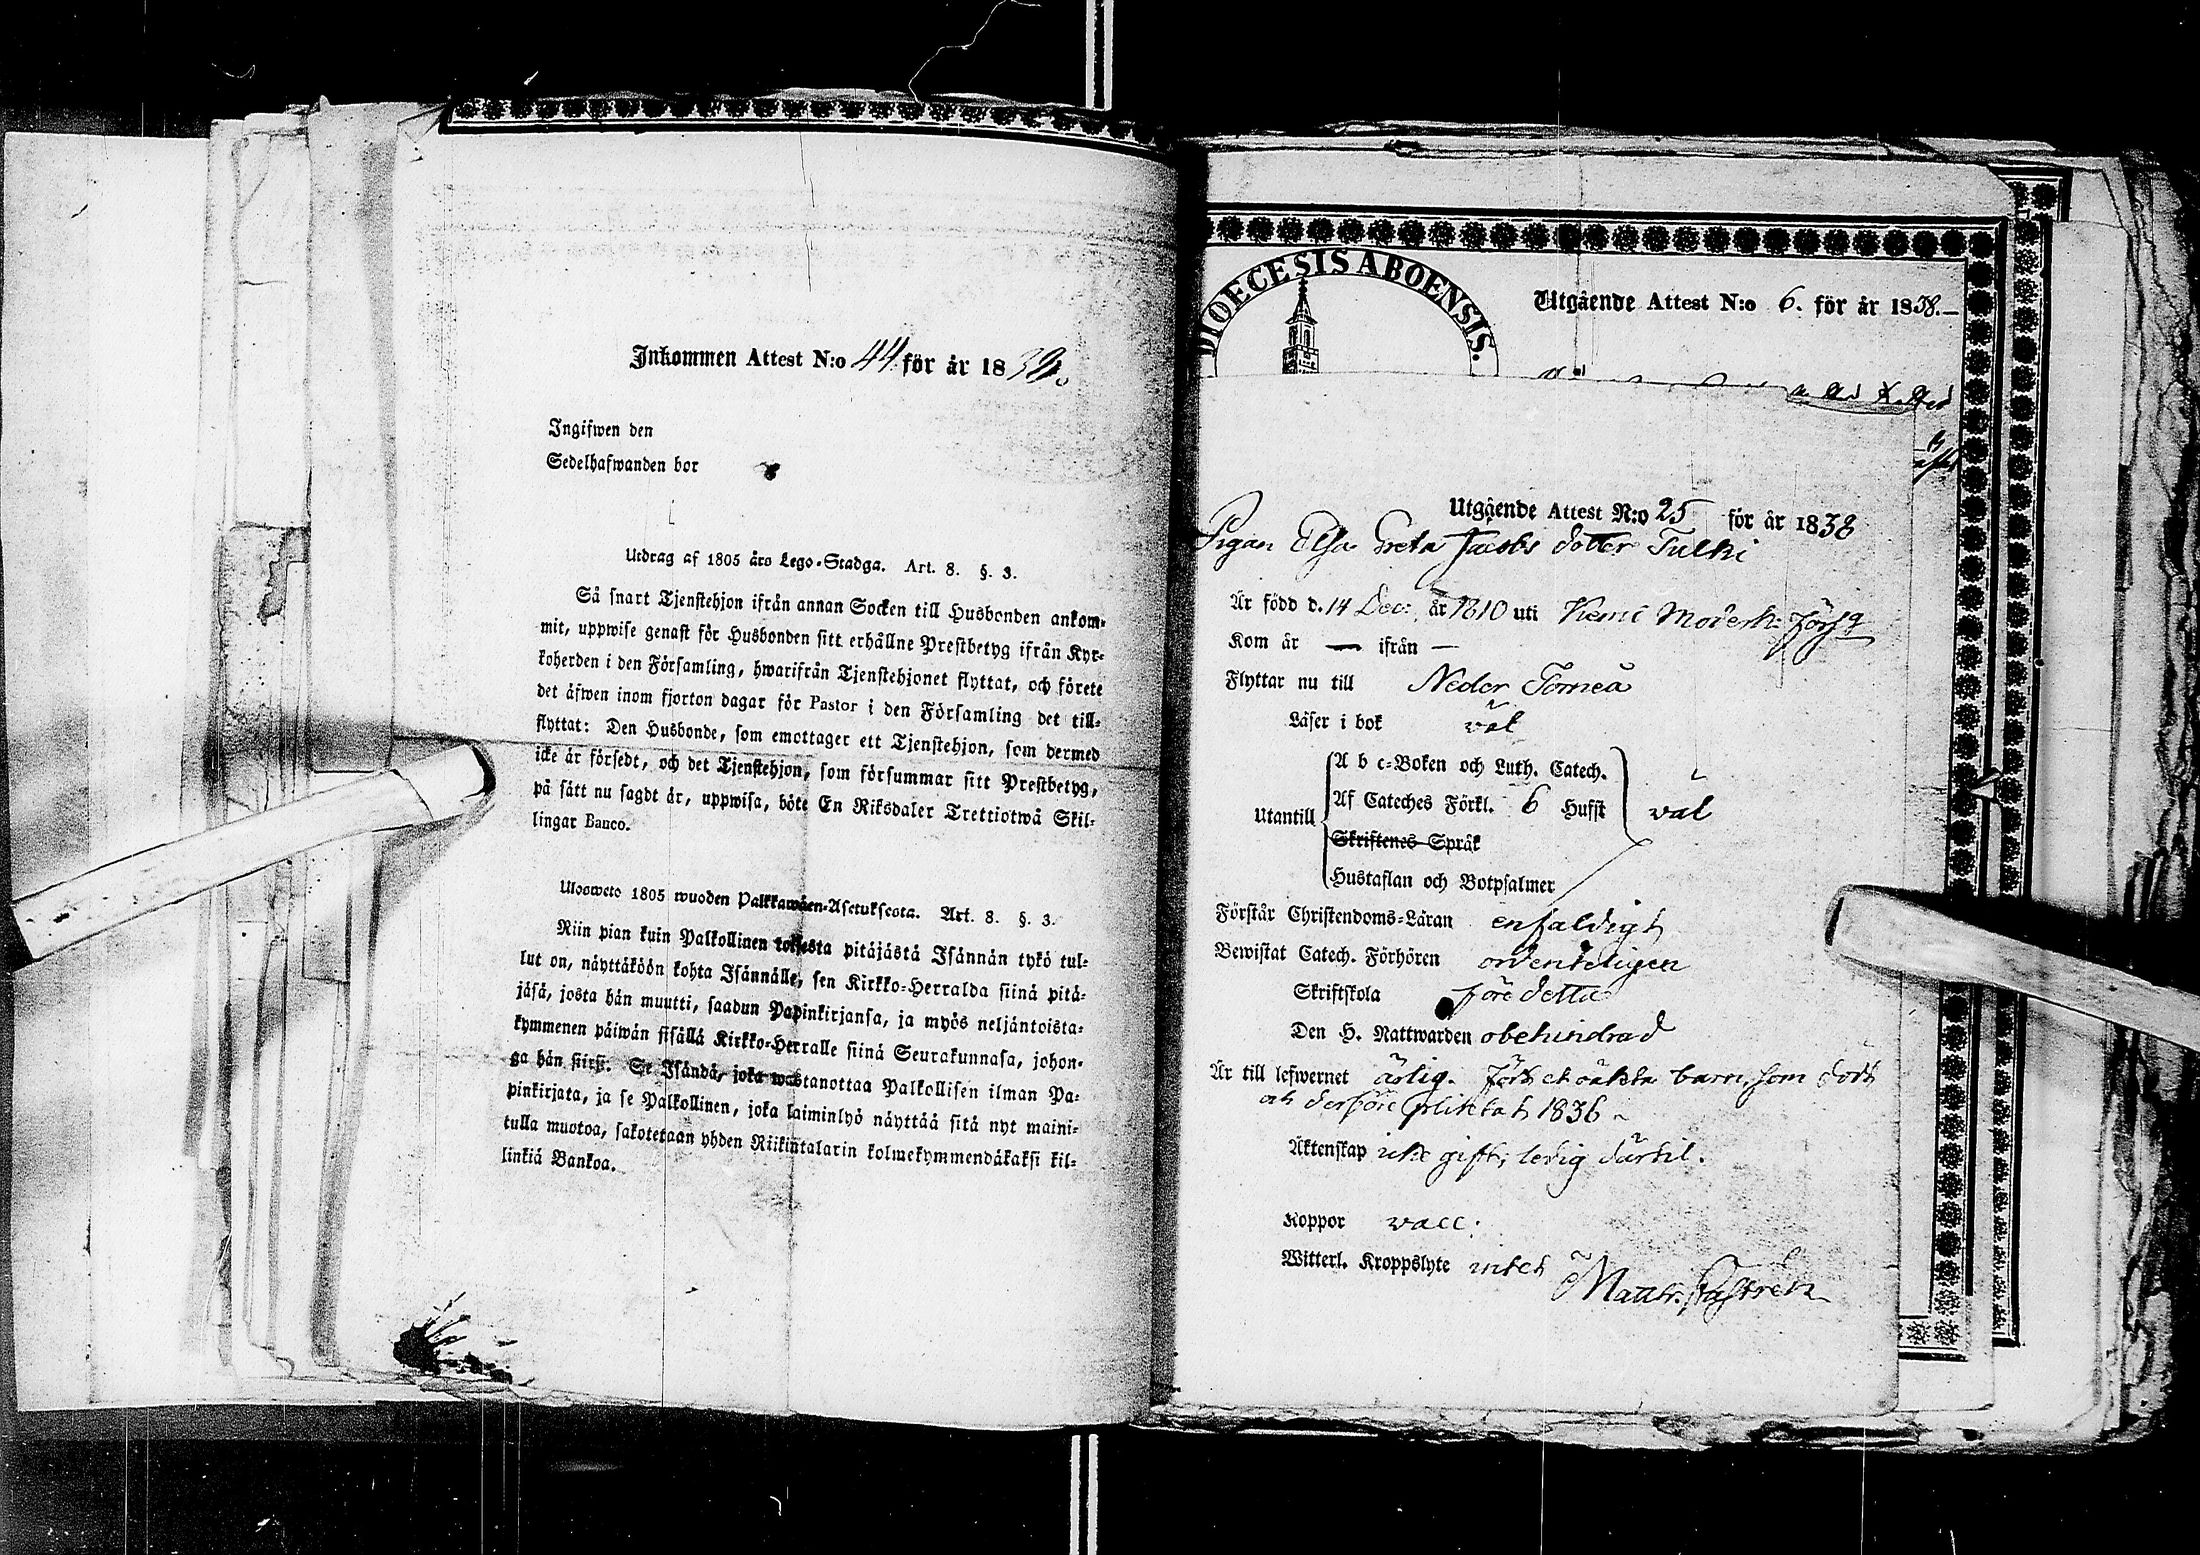 Inkommen Attest N:o 44 för år 1838.
Ingifwen den
Sedelhafwanden bor
Utdrag af 1805 års Lego-Stadga. Art. 8. §. 3.
Så snart Tjenstehjon ifrån annan Socken till Husbonden ankom-
mit, uppwise genast för Husbonden sitt erhållne Prestbetyg ifrån Kyr-
koherden i den Församling, hwarifrån Tjenstehjonet flyttat, och förete
det äfwen inom fjorton dagar för Pastor i den Församling det till-
flyttat: Den Husbonde, som emottager ett Tjenstehjon, som dermed
icke är försedt, och det Tjenstehjon, som försummar sitt Prestbetyg,
på sätt nu sagdt är, uppwisa, böte En Riksdaler Trettiotwå Skil-
lingar Banco.
Ulosweto 1805 wuoden Palkkawäen-Asetuksesta. Art. 8. §. 3.
Niin pian kuin Palkollinen toisesta pitäjästä Isännän tykö tul-
lut on, näyttäköön kohta Isännälle, sen Kirkko-Herralda siinä pitä-
jäsä, josta hän muutti, saadun Papinkirjansa, ja myös neljäntoista-
kymmenen päiwän sisällä Kirkko-Herralle siinä Seurakunnasa, johon-
ga hän siirsi: Se Isändä, joka wastanottaa Palkollisen ilman Pa-
pinkirjata, ja se Palkollinen, joka laiminlyö näyttää sitä nyt maini-
tulla muotoa, sakotetaan yhden Riikintalarin kolmekymmendäkaksi kil-
linkiä Bankoa.
DIOECESIS ABOENSIS.
Utgående Attest N:o 6. för år 1838.
Utgående Attest N:o 25 för år 1838
Pigan Elsa Greta Jacobs dotter Tulki
Är född d. 14 Dec: år 1810 uti Kemi Moderk: Förs:g
Kom år — ifrån —
Flyttar nu till Neder Torneå
Läser i bok väl
A b c-Boken och Luth. Catech.
Af Cateches Förkl. 6 Hufst
Utantill väl
Skriftenes Språk
Hustaflan och Botpsalmer
Förstår Christendoms-Läran enfaldigt
Bewistat Catech. Förhören ordenteligen
Skriftskola före detta
Den H. Nattwarden obehindrad
Är till lefwernet ärlig. Födt et oäkta barn, som dödt
och derföre pliktat 1836
Äktenskap icke gift; ledig därtil.
Koppor vacc:
Witterl. Kroppslyte intet
Matth. Castrén